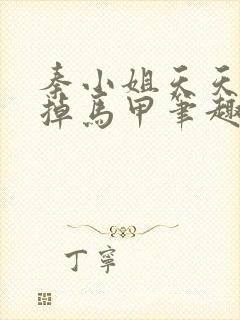 秦小姐天天
掉马甲笔趣
丁宁